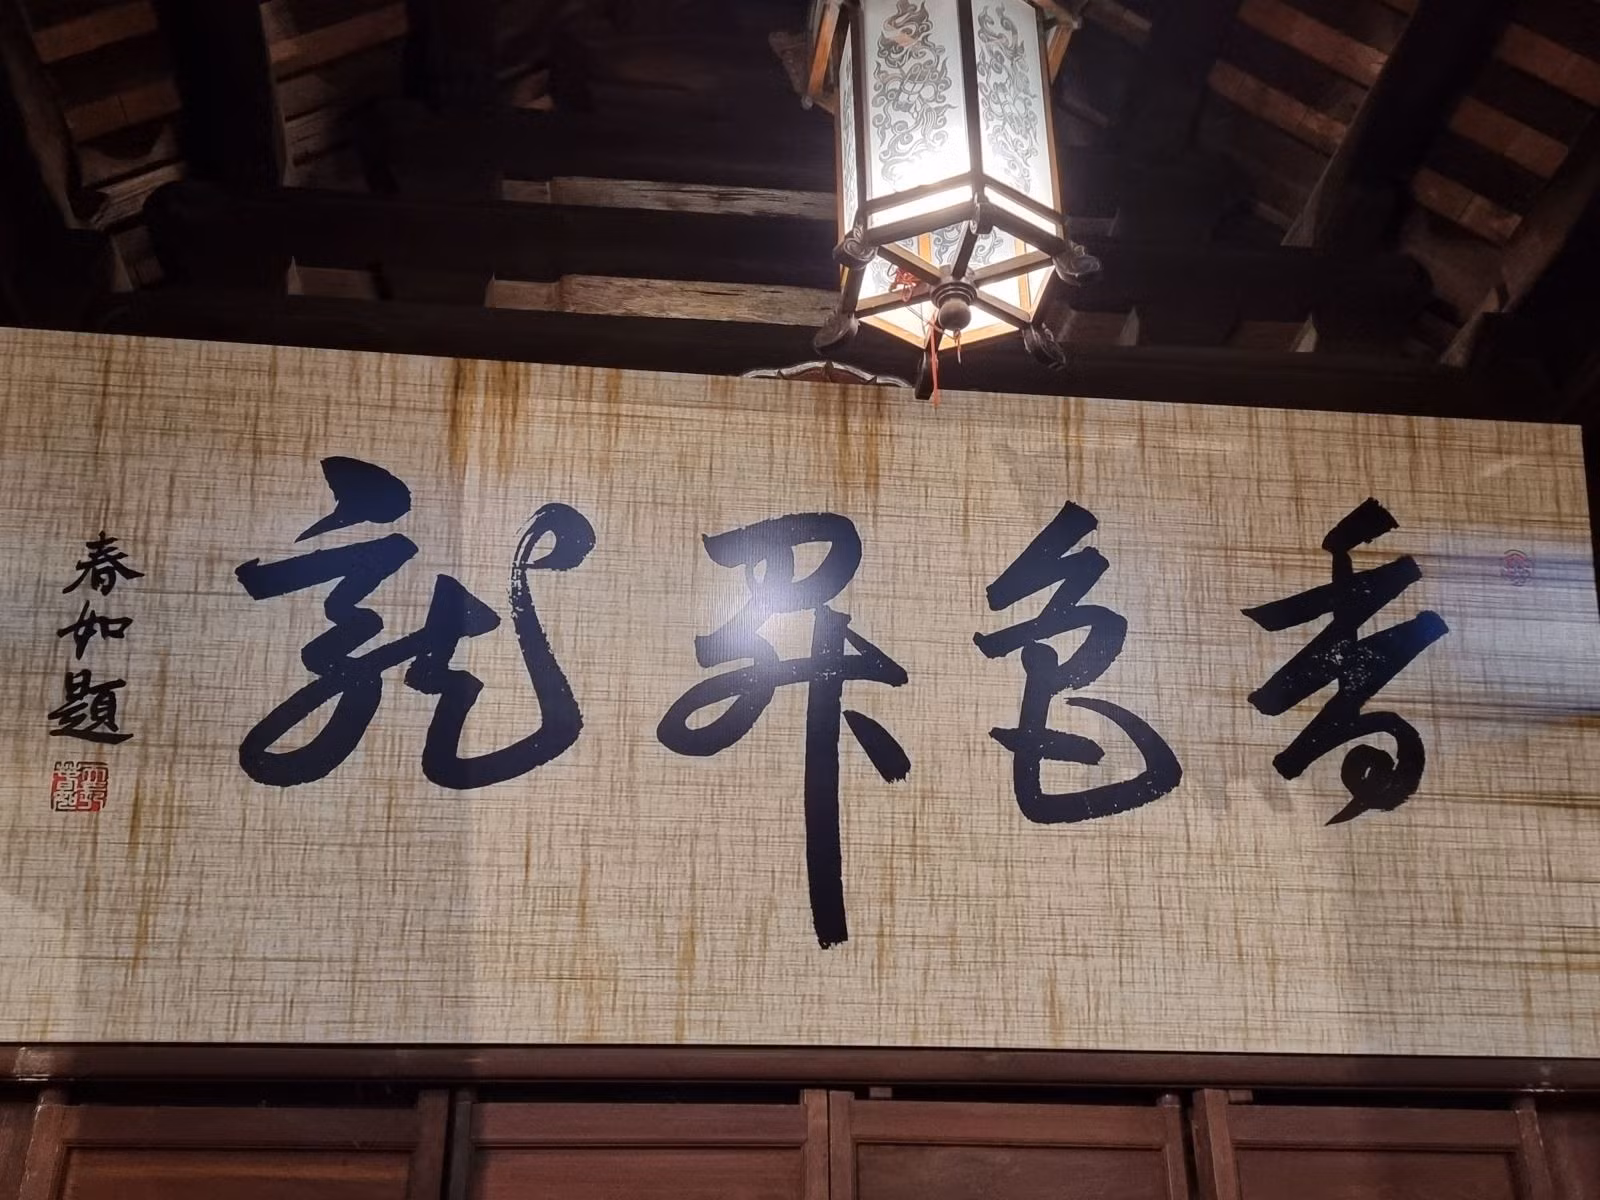 香色昇龍
春如題